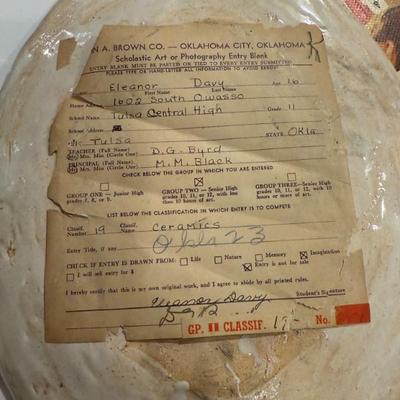 N A. BROWN CO. — OKLAHOMA CITY, OKLAHOMA
Scholastic Art or Photography Entry Blank
ENTRY BLANK MUST BE PASTED OR TIED TO EVERY ENTRY SUBMITTED
PLEASE TYPE OR HAND-LETTER ALL INFORMATION TO AVOID ERROR!
Eleanor Davy Age 16
First Name Last Name
Home Address 1602 South Owasso
School Name Tulsa Central High Grade 11
School Address
Tulsa STATE Okla.
TEACHER (Full Name) D.G. Byrd
Mr. Mrs. Miss (Circle One)
PRINCIPAL (Full Name) M.M. Black
Mr. Mrs. Miss (Circle One)
CHECK BELOW THE GROUP IN WHICH YOU ARE ENTERED
GROUP ONE — Junior High grades 7, 8, or 9.
GROUP TWO — Senior High grades 10, 11, or 12, with less than 10 hours of art.
GROUP THREE — Senior High grades 10, 11, or 12, with 10 hours or more of art.
LIST BELOW THE CLASSIFICATION IN WHICH ENTRY IS TO COMPETE
Classif. Number 19 Classif. Name Ceramics
Entry Title, if any
CHECK IF ENTRY IS DRAWN FROM: Life Nature Memory Imagination
I will sell entry for $ Entry is not for sale
I hereby certify that this is my own original work, and I agree to abide by all printed rules.
Eleanor Davy
Student's Signature
GP. II CLASSIF. 19 No.